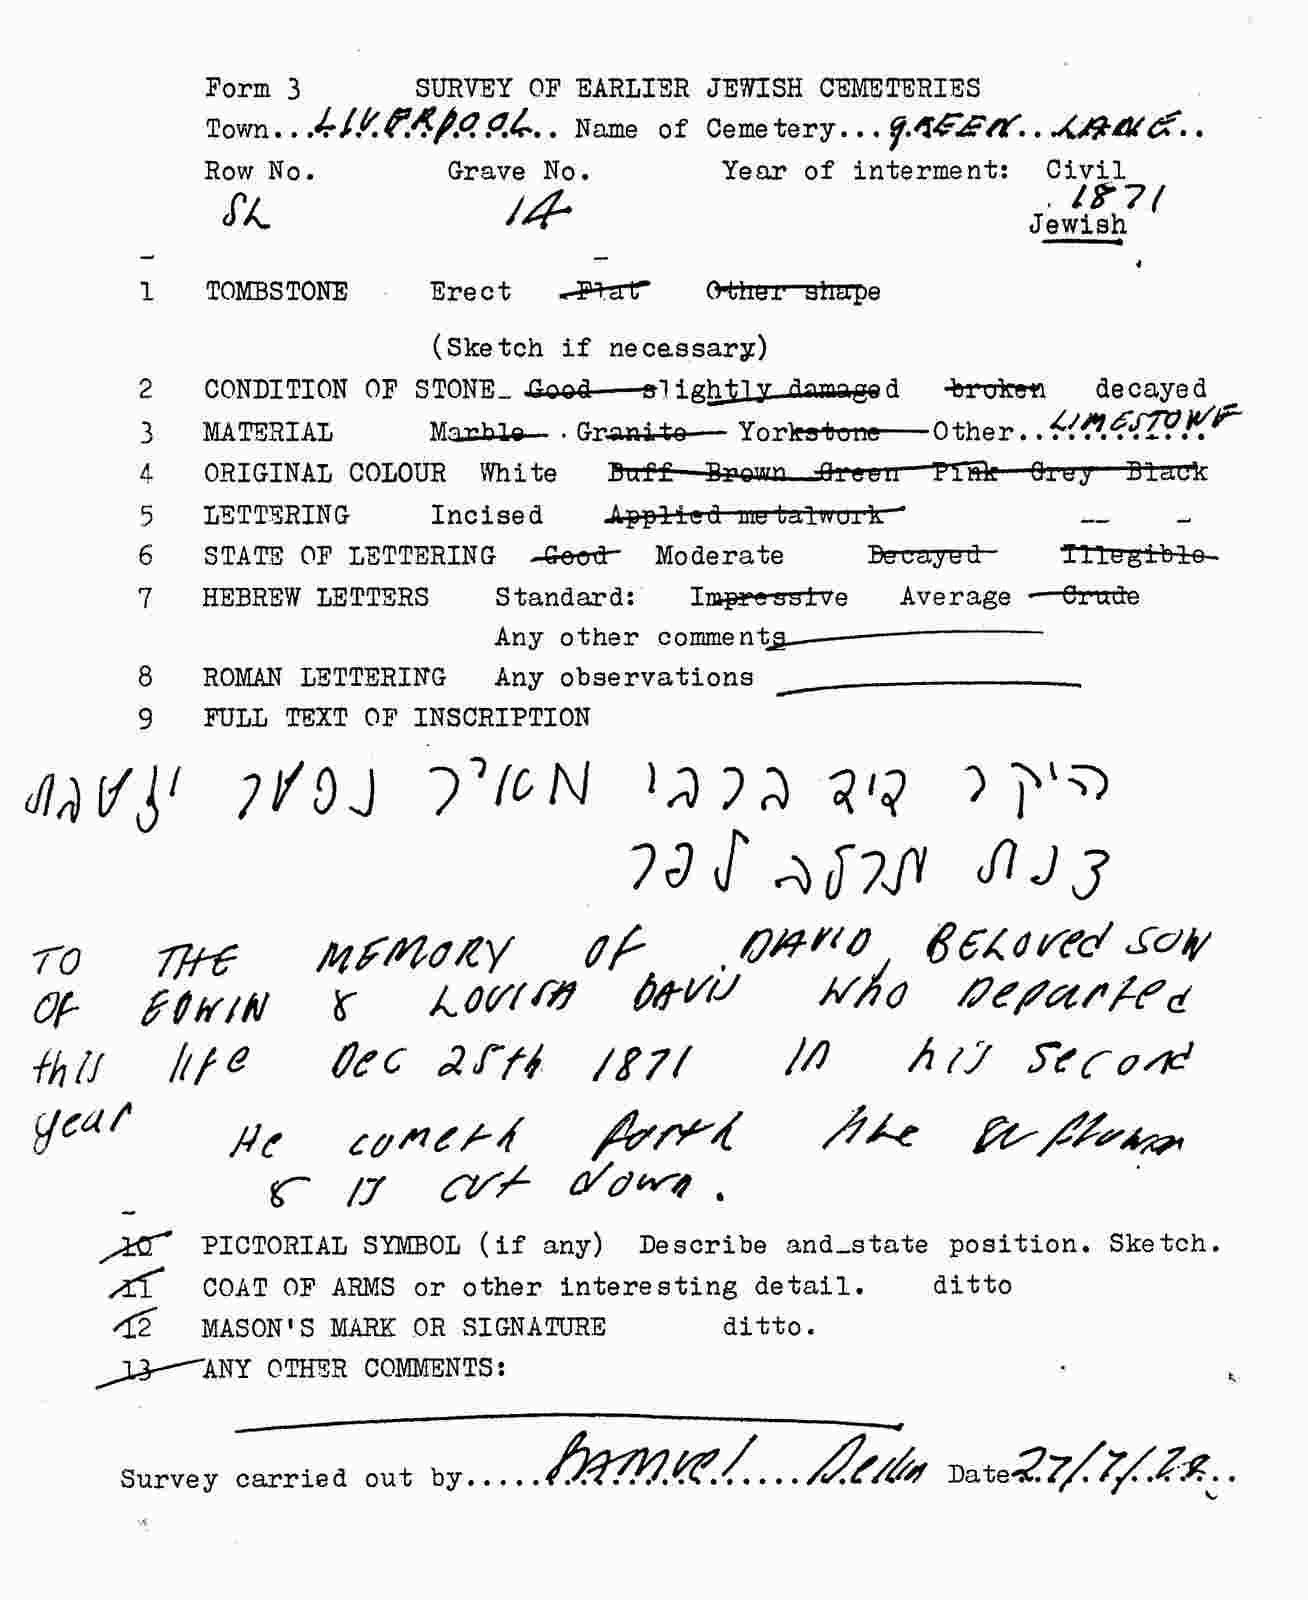 Form 3 SURVEY OF EARLIER JEWISH CEMETERIES
Town...LIVERPOOL.. Name of Cemetery...GREEN...LANE..
Row No. Grave No. Year of interment: Civil
SL 14 1871
Jewish
1 TOMBSTONE Erect Flat Other shape
(Sketch if necessary)
2 CONDITION OF STONE Good slightly damaged broken decayed
3 MATERIAL Marble Granite Yorkstone Other...LIMESTONE
4 ORIGINAL COLOUR White Buff Brown Green Pink Grey Black
5 LETTERING Incised Applied metalwork
6 STATE OF LETTERING Good Moderate Decayed Illegible
7 HEBREW LETTERS Standard: Impressive Average Crude
Any other comments
8 ROMAN LETTERING Any observations
9 FULL TEXT OF INSCRIPTION
היקר דיד ברבי מאיר נפטר
תרלב לפר
TO THE MEMORY OF DAVID, BELOVED SON
OF EDWIN & LOUISA DAVIS WHO Departed
this life Dec 25th 1871 IN his second
year He cometh forth like a flower
& is cut down.
10 PICTORIAL SYMBOL (if any) Describe and state position. Sketch.
11 COAT OF ARMS or other interesting detail. ditto
12 MASON'S MARK OR SIGNATURE ditto.
13 ANY OTHER COMMENTS:
Survey carried out by.....SAMUEL.... Date 27/7/